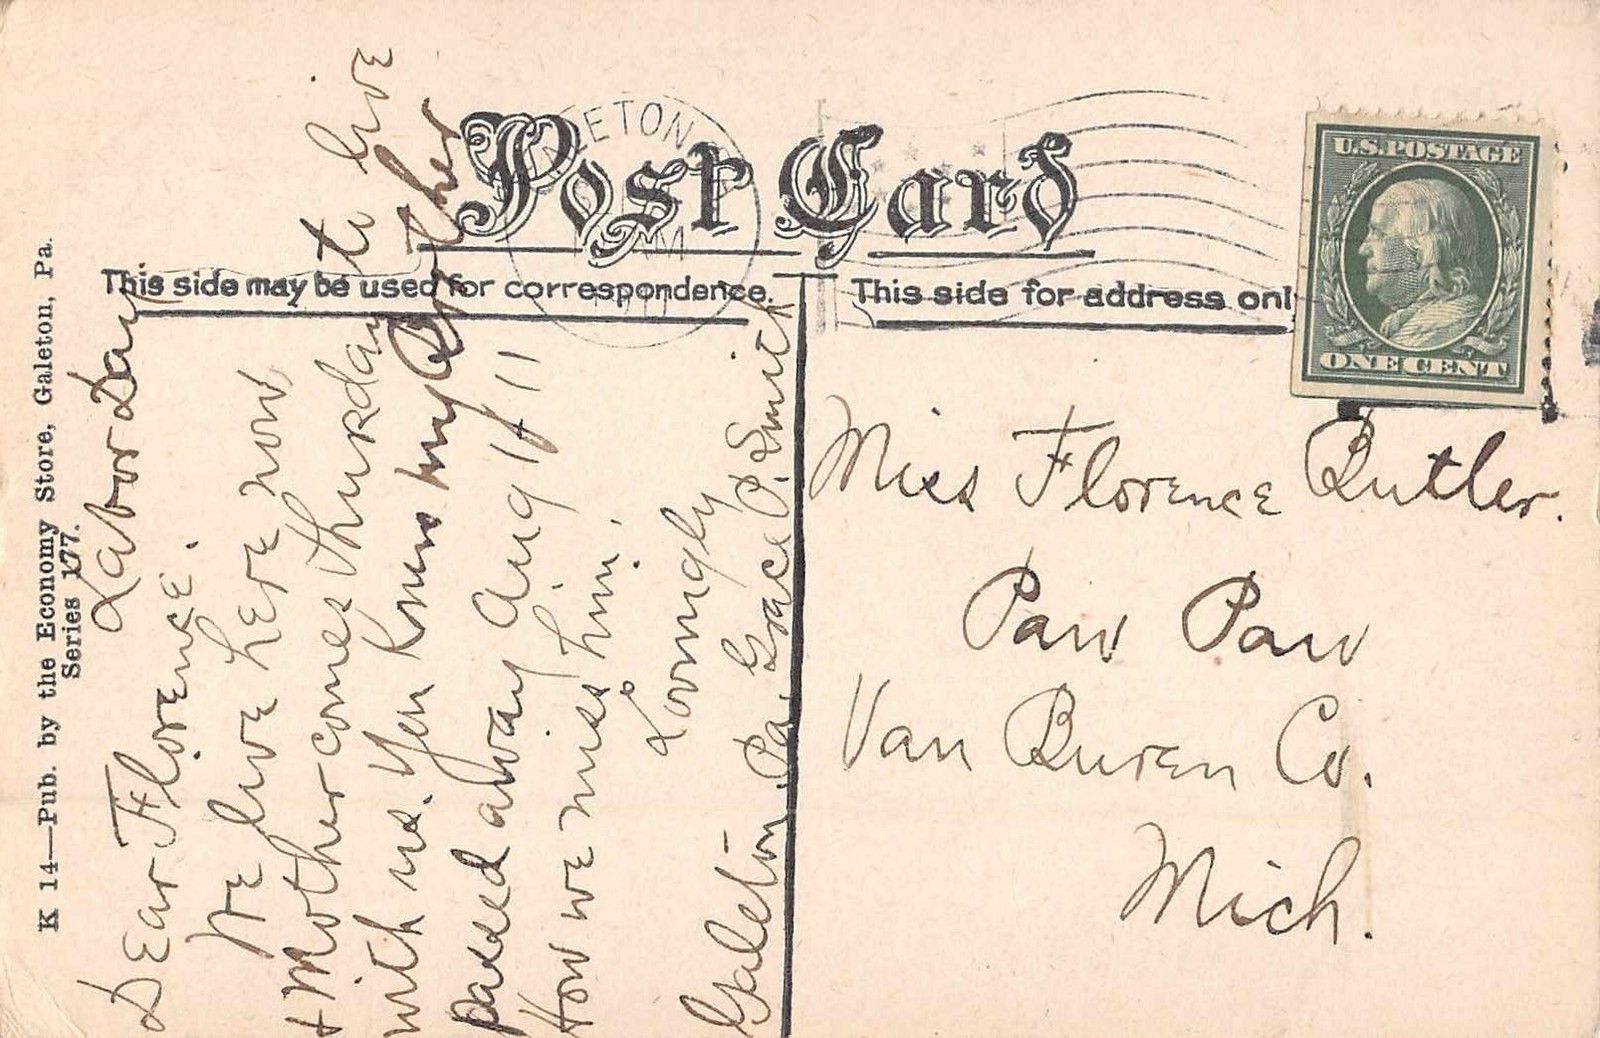 Post Card
This side may be used for correspondence.
This side for address onl
K 14—Pub. by the Economy Store, Galeton, Pa.
Series 177.
U.S. POSTAGE
ONE CENT
LETON
1911
Labor Day
Dear Florence.
We live here now
+ Mother comes Thursday to live
with us. You know my
passed away Aug 1/11
How we miss him!
Lovingly
Grace P. Smith
Galeton, Pa.
Miss Florence Butler.
Paw Paw
Van Buren Co.
Mich.